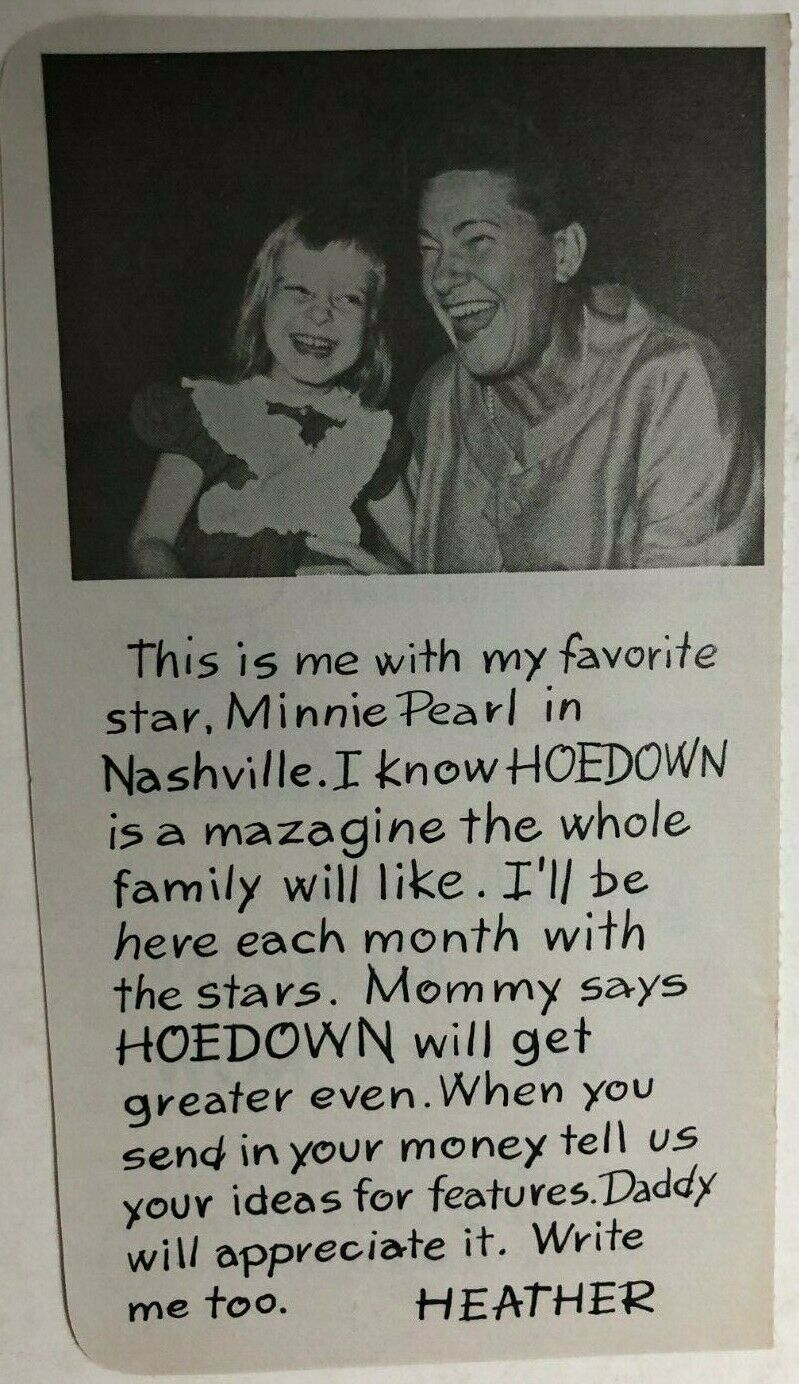 This is me with my favorite
star, Minnie Pearl in
Nashville. I know HOEDOWN
is a mazagine the whole
family will like. I'll be
here each month with
the stars. Mommy says
HOEDOWN will get
greater even. When you
send in your money tell us
your ideas for features. Daddy
will appreciate it. Write
me too. HEATHER